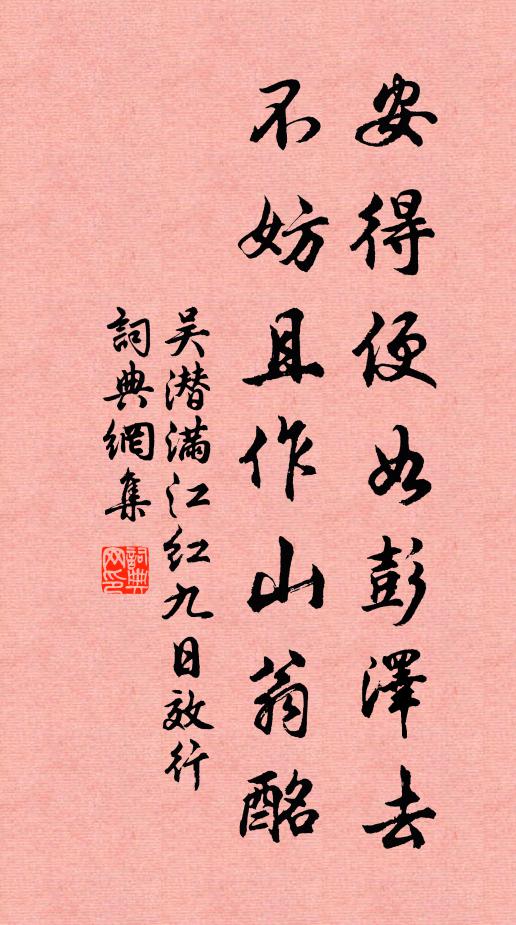 安得便如彭澤去
不妨且作山翁酩
吴潜滿江红九日效行
詞典網集
詞典网印